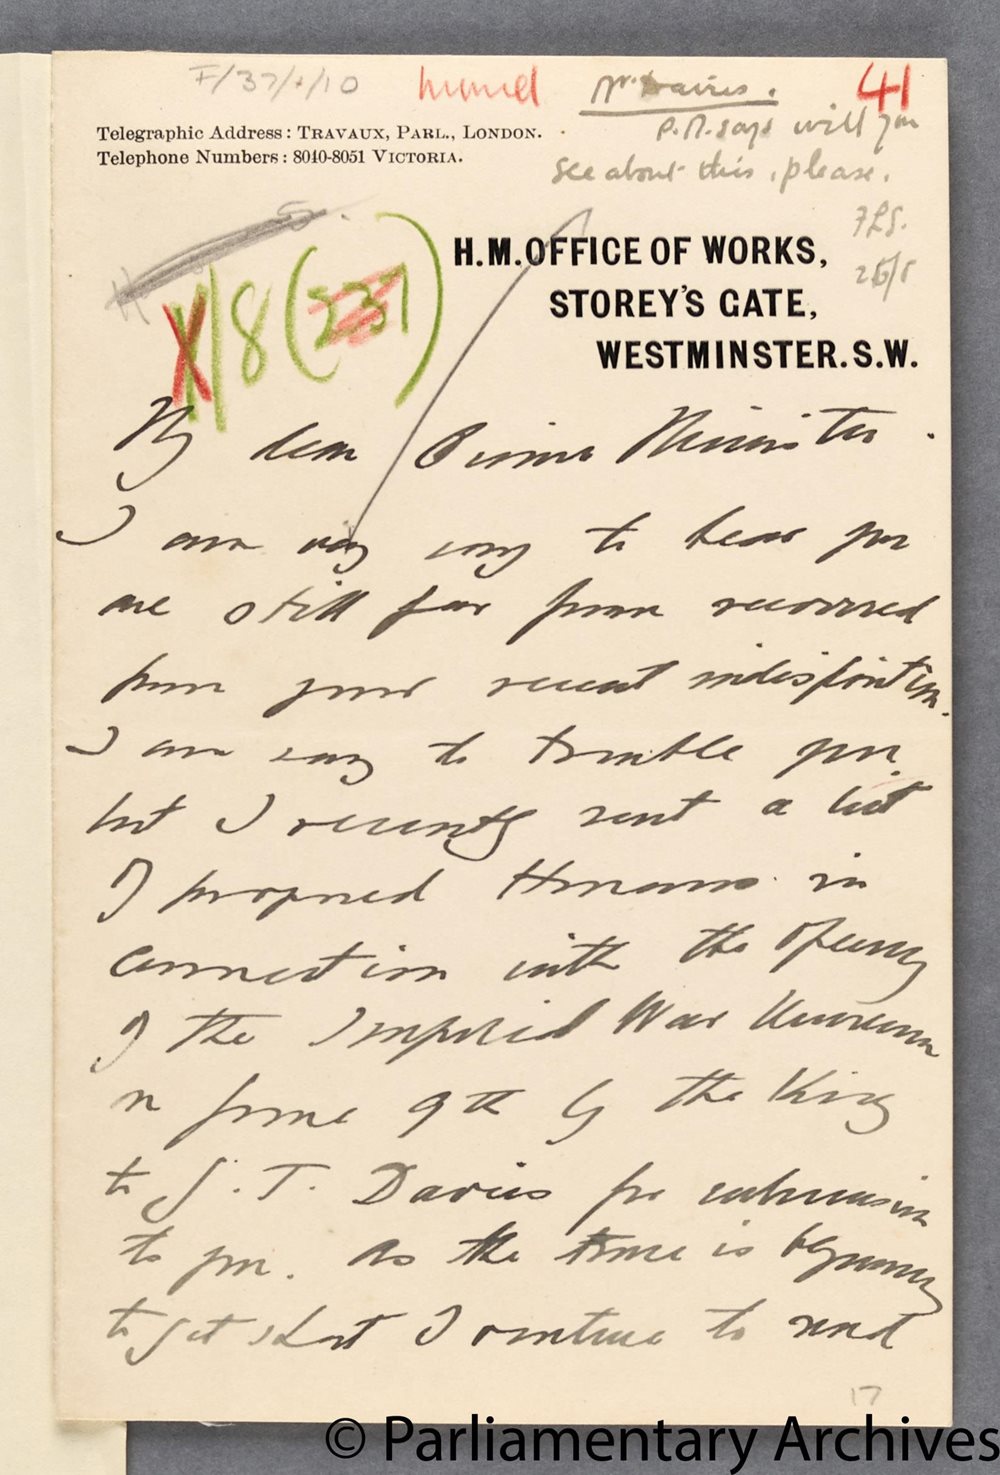 F/37/1/10
Mr. Davies.
41
P.M. says will you
see about this, please.
FLS.
Telegraphic Address: TRAVAUX, PARL., LONDON.
Telephone Numbers: 8040-8051 VICTORIA.
H.M. OFFICE OF WORKS,
STOREY'S GATE,
WESTMINSTER. S.W.
X/8 (237)
My dear Prime Minister.
I am very sorry to hear you
are still far from recovered
from your recent indisposition.
I am sorry to trouble you
but I recently sent a list
of proposed Honours in
connection with the opening
of the Imperial War Museum
on June 9th by the King
to J. T. Davies for submission
to you. As the time is beginning
to get short I venture to send
17
© Parliamentary Archives